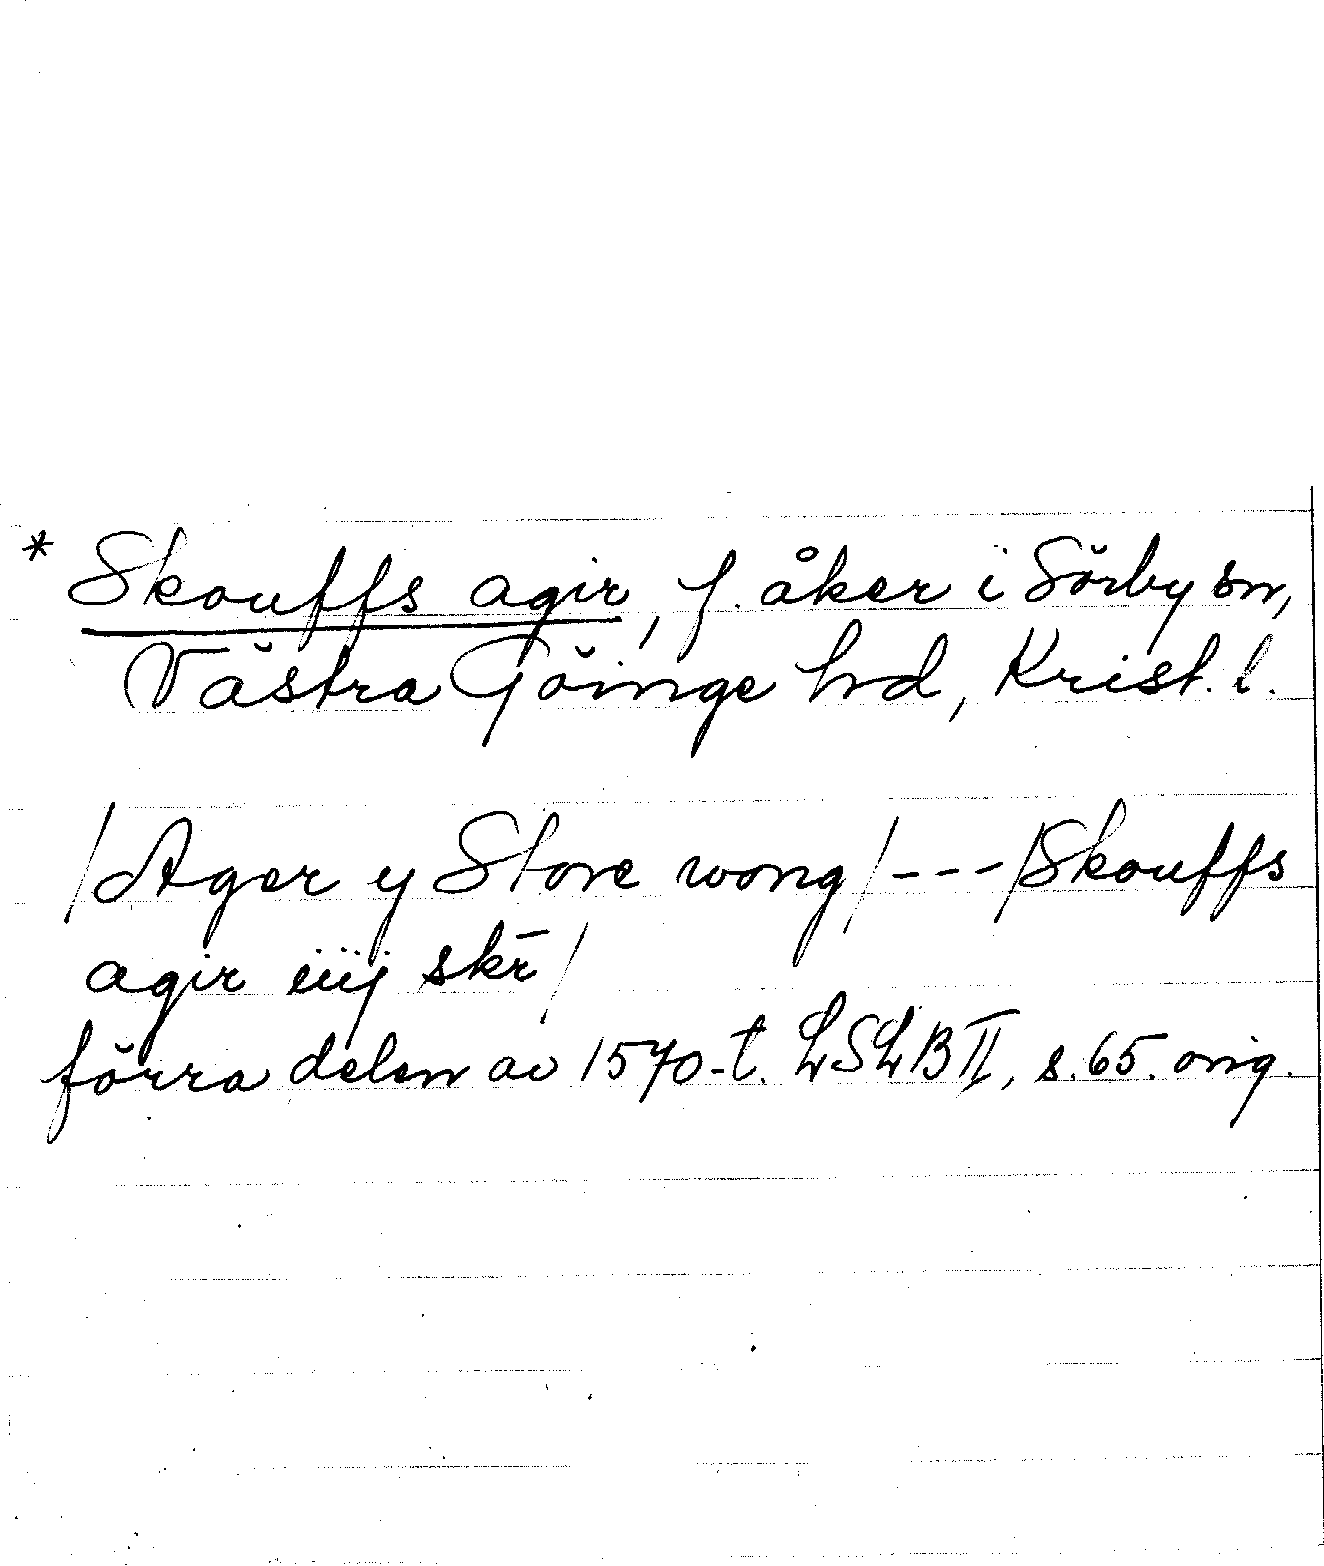 * Skouffs agir, f. åker i Sörby sn,
Västra Göinge hd, Krist. l.
/Ager y Store wong/ - - - /Skouffs
agir iiij skr̄/
förra delen av 1570-t. LSLB II, s. 65. orig.